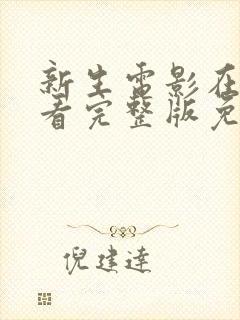 新生电影在
看完整版免
倪建达